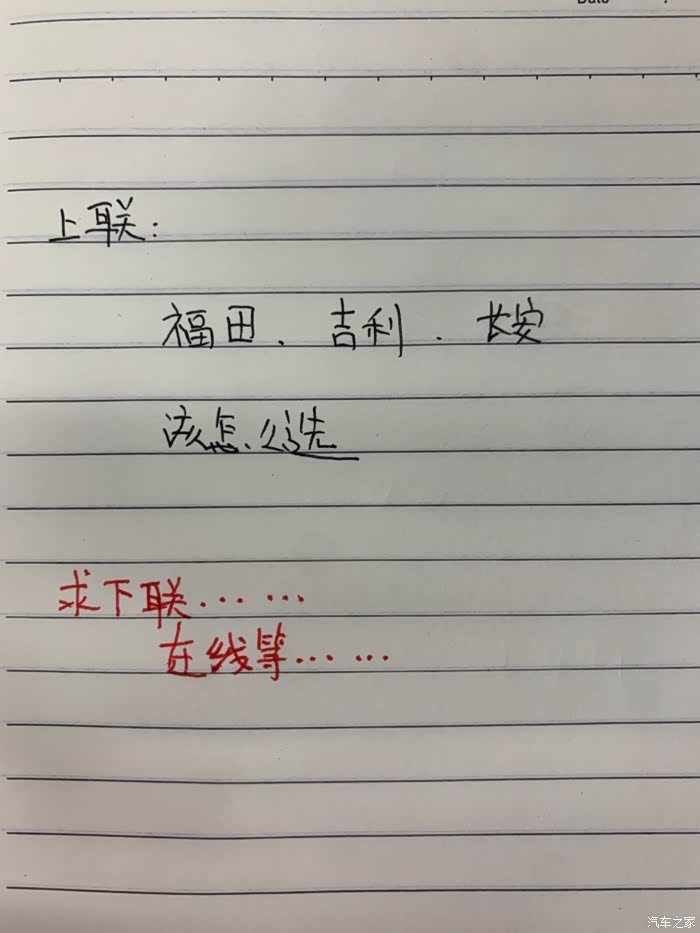 Date
上联：
福田、吉利、长安
该怎么选
求下联……
在线等……
汽车之家